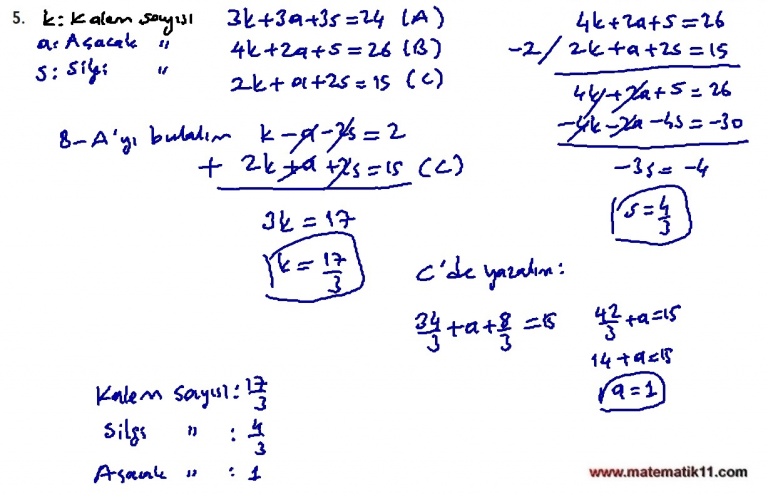 5. k: Kalem sayısı
a: Açacak "
s: Silgi "
3k+3a+3s=24 (A)
4k+2a+s=26 (B)
2k+a+2s=15 (C)
B-A'yı bulalım k-a-2s=2
+ 2k+a+2s=15 (C)
3k=17
k=17/3
4k+2a+s=26
-2/ 2k+a+2s=15
4k+2a+s=26
-4k-2a-4s=-30
-3s=-4
s=4/3
C'de yazalım:
34/3+a+8/3=15
42/3+a=15
14+a=15
a=1
Kalem sayısı: 17/3
Silgi " : 4/3
Açacak " : 1
www.matematik11.com